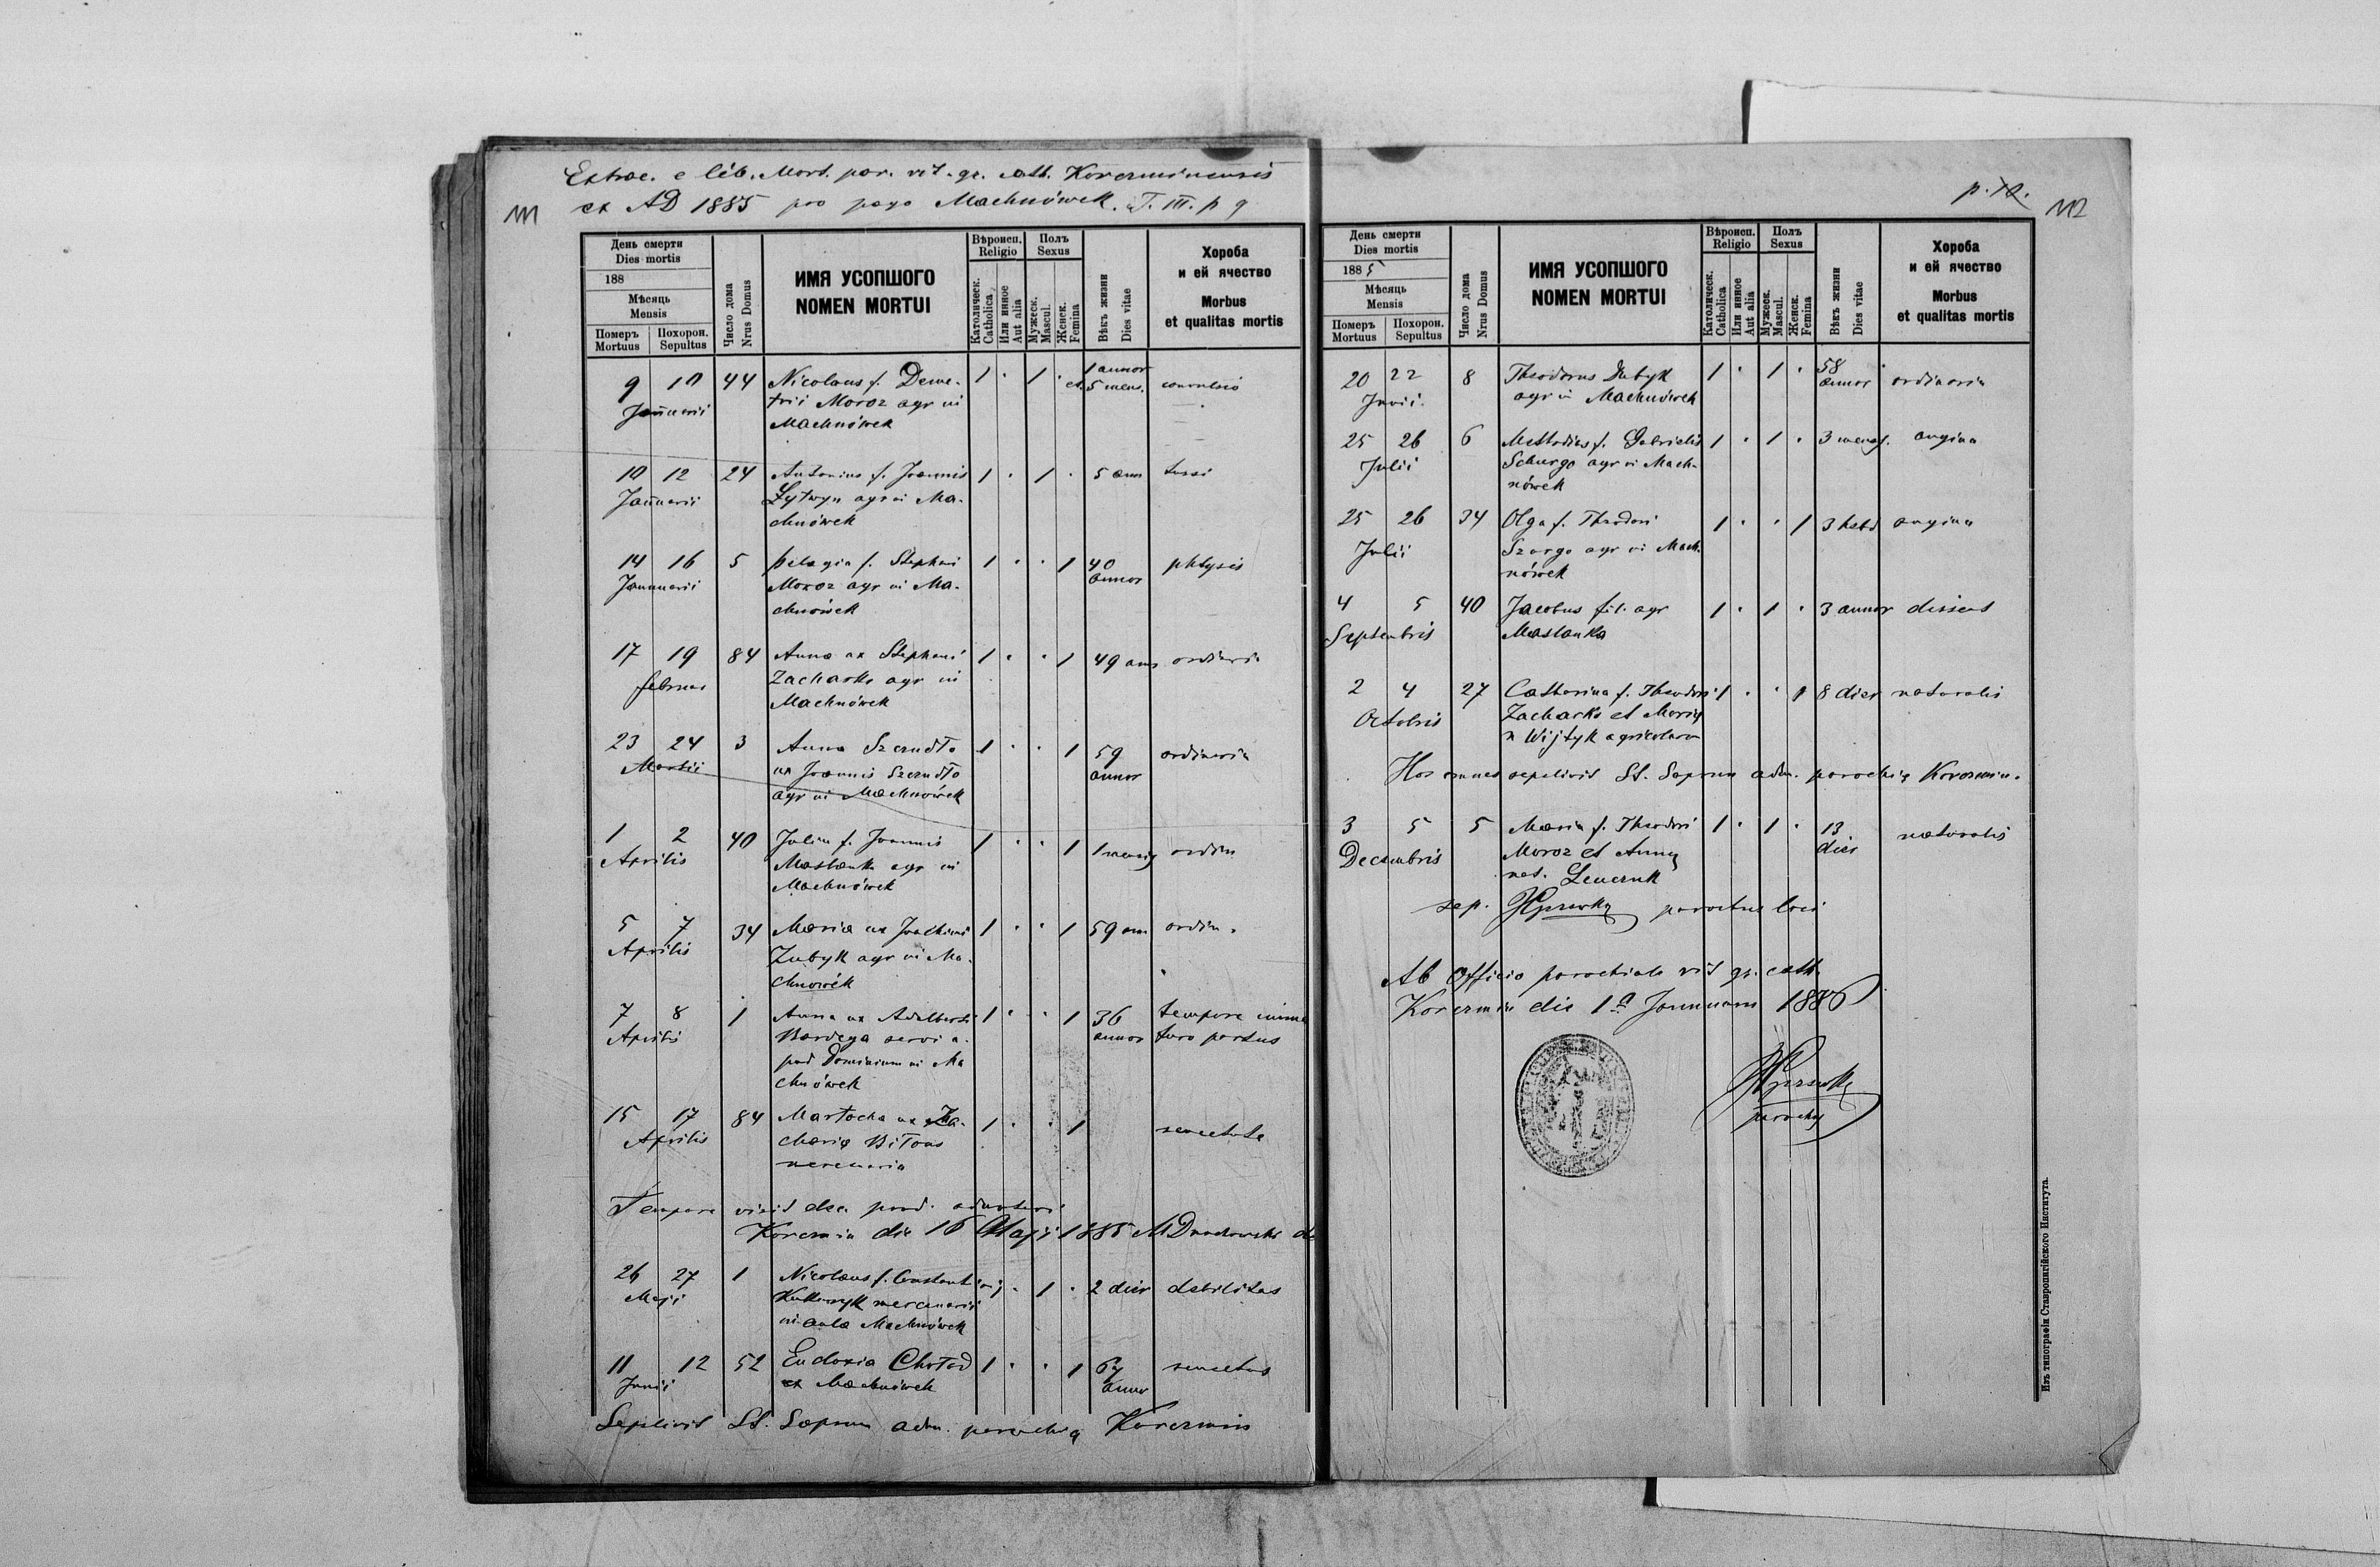 Extrac. e lib. Mort. par. rit. gr. cath. Korczminensis
ex AD 1885 pro pago Machnówek. T. III. p 9
111
День смерти
Dies mortis
188
Мѣсяць
Mensis
Померъ
Mortuus
Похорон.
Sepultus
Число дома
Nrus Domus
ИМЯ УСОПШОГО
NOMEN MORTUI
Вѣроисп.
Religio
Католическ.
Catholica
Или инное
Aut alia
Полъ
Sexus
Мужеск.
Mascul.
Женск.
Femina
Вѣкъ жизни
Dies vitae
Хороба
и ей ячество
Morbus
et qualitas mortis
9 10 44 Nicolaus f. Deme- 1 · 1 · 1 annor
Januarii trii Moroz agr in et 5 mens. convulsio
Machnówek
10 12 24 Antonius f. Joannis 1 · 1 · 5 ann tussi
Januarii Łytwyn agr in Ma-
chnówek
14 16 5 Pelagia f. Stephani 1 · · 1 40 phtysis
Januarii Moroz agr in Ma- annor
chnówek
17 19 84 Anna ux Stephani 1 · · 1 49 ann ordinaria
februar Zacharko agr in
Machnówek
23 24 3 Anna Szczudło 1 · · 1 59 ordinaria
Martii ux Joannis Szczudło annor
agr in Machnówek
1 2 40 Julia f. Joannis 1 · · 1 1 mensis ordin
Aprilis Maslanka agr in
Machnówek
5 7 34 Maria ux Joachimi 1 · · 1 59 ann ordin.
Aprilis Zubyk agr in Ma-
chnowék
7 8 1 Anna ux Adalberti 1 · · 1 36 tempore imma
Aprilis Bardega servi a- annor turo partus
pud Dominium in Ma
chnówek
15 17 84 Martocha ux Za- 1 · · 1 senectute
Aprilis chariæ Biłous
mercenaria
Tempore visit. dec.
Korczmin die 16 Maji 1885
26 27 1 Nicolaus f. Constantini · 1 · 2 dier debilitas
Maji mercenarii
in aula Machnówek
11 12 52 Eudoxia Chołod 1 · · 1 67 senectus
Junii ex Machnówek annor
Sepelivit St. Saprun adm. parochiæ Korczmin
p. 10.
112
День смерти
Dies mortis
1885
Мѣсяць
Mensis
Померъ
Mortuus
Похорон.
Sepultus
Число дома
Nrus Domus
ИМЯ УСОПШОГО
NOMEN MORTUI
Вѣроисп.
Religio
Католическ.
Catholica
Или инное
Aut alia
Полъ
Sexus
Мужеск.
Mascul.
Женск.
Femina
Вѣкъ жизни
Dies vitae
Хороба
и ей ячество
Morbus
et qualitas mortis
20 22 8 Theodorus Dubyk 1 · 1 · 58 ordinaria
Junii. agr in Machnówek annor
25 26 6 Methodius f. Gabrielis 1 · 1 · 3 mens. angina
Julii agr in Mach-
nówek
25 26 34 Olga f. Theodori 1 · · 1 3 hebd angina
Julii agr in Mach-
nówek
4 5 40 Jacobus fil. agr 1 · 1 · 3 annor
Septembris Maslanka
2 4 27 Catharina f. Theodori 1 · · 1 8 dier naturalis
Octobris Zacharko et Mariæ
n Wijtyk agricolarum
Hos omnes sepelivit St. Saprun adm. parochiæ Korczmin.
3 5 5 Maria f. Theodori 1 · 1 · 13 naturalis
Decembris Moroz et Annæ dier
nat.
sep. parochus loci
Ab Officio parochiale rit gr. cath.
Korczmin die 1a Januarii 1886
parochus
Изъ типографіи Ставропигійского Института.